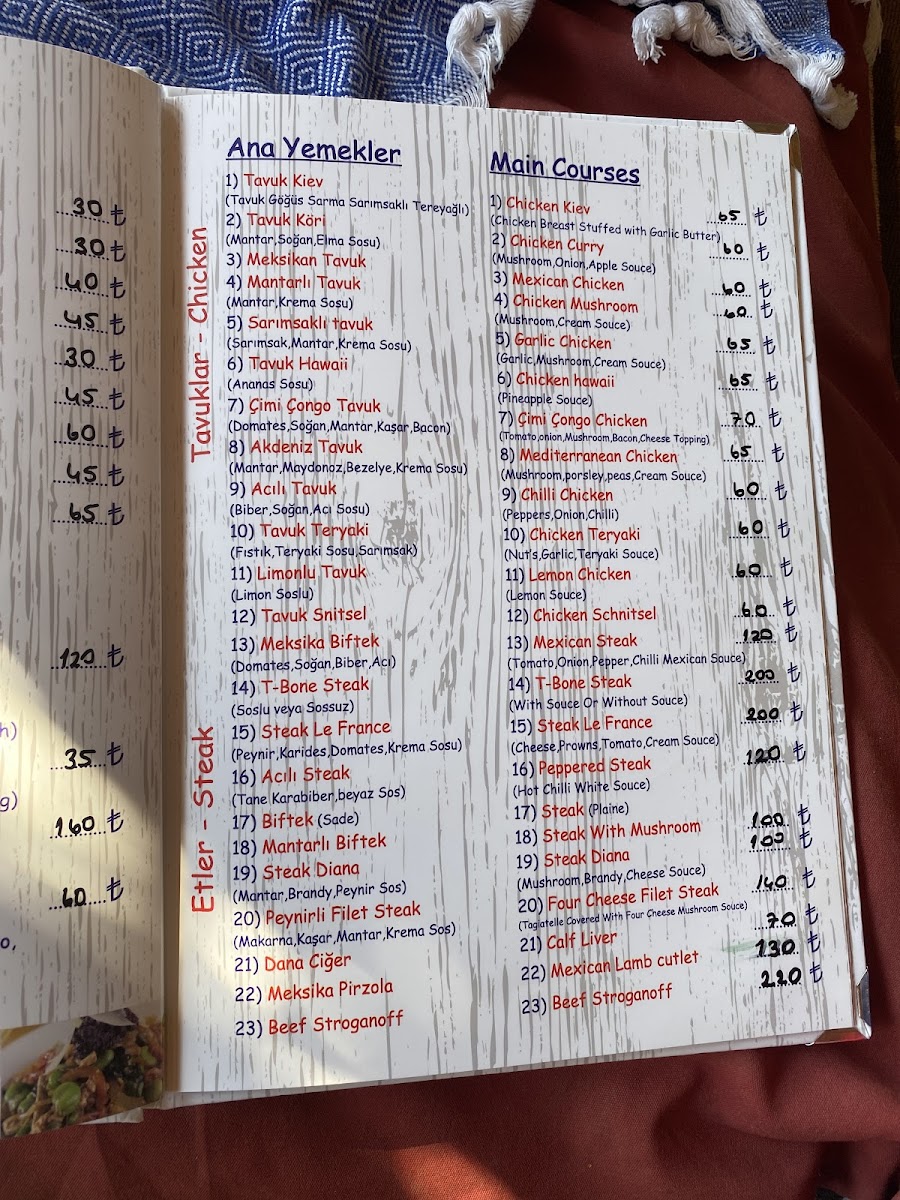 30 ₺
30 ₺
40 ₺
45 ₺
30 ₺
45 ₺
60 ₺
45 ₺
65 ₺
120 ₺
h)
35 ₺
g)
160 ₺
60 ₺
o,
Tavuklar - Chicken
Etler - Steak
Ana Yemekler
1) Tavuk Kiev
(Tavuk Göğüs Sarma Sarımsaklı Tereyağlı)
2) Tavuk Köri
(Mantar,Soğan,Elma Sosu)
3) Meksikan Tavuk
4) Mantarlı Tavuk
(Mantar,Krema Sosu)
5) Sarımsaklı tavuk
(Sarımsak,Mantar,Krema Sosu)
6) Tavuk Hawaii
(Ananas Sosu)
7) Çimi Çongo Tavuk
(Domates,Soğan,Mantar,Kaşar,Bacon)
8) Akdeniz Tavuk
(Mantar,Maydonoz,Bezelye,Krema Sosu)
9) Acılı Tavuk
(Biber,Soğan,Acı Sosu)
10) Tavuk Teryaki
(Fıstık,Teryaki Sosu,Sarımsak)
11) Limonlu Tavuk
(Limon Soslu)
12) Tavuk Snitsel
13) Meksika Biftek
(Domates,Soğan,Biber,Acı)
14) T-Bone Steak
(Soslu veya Sossuz)
15) Steak Le France
(Peynir,Karides,Domates,Krema Sosu)
16) Acılı Steak
(Tane Karabiber,beyaz Sos)
17) Biftek (Sade)
18) Mantarlı Biftek
19) Steak Diana
(Mantar,Brandy,Peynir Sos)
20) Peynirli Filet Steak
(Makarna,Kaşar,Mantar,Krema Sos)
21) Dana Ciğer
22) Meksika Pirzola
23) Beef Stroganoff
Main Courses
1) Chicken Kiev
(Chicken Breast Stuffed with Garlic Butter)
2) Chicken Curry
(Mushroom,Onion,Apple Souce)
3) Mexican Chicken
4) Chicken Mushroom
(Mushroom,Cream Souce)
5) Garlic Chicken
(Garlic,Mushroom,Cream Souce)
6) Chicken hawaii
(Pineapple Souce)
7) Çimi Çongo Chicken
(Tomato,onion,Mushroom,Bacon,Cheese Topping)
8) Mediterranean Chicken
(Mushroom,porsley,peas,Cream Souce)
9) Chilli Chicken
(Peppers,Onion,Chilli)
10) Chicken Teryaki
(Nut's,Garlic,Teryaki Souce)
11) Lemon Chicken
(Lemon Souce)
12) Chicken Schnitsel
13) Mexican Steak
(Tomato,Onion,Pepper,Chilli Mexican Souce)
14) T-Bone Steak
(With Souce Or Without Souce)
15) Steak Le France
(Cheese,Prowns,Tomato,Cream Souce)
16) Peppered Steak
(Hot Chilli White Souce)
17) Steak (Plaine)
18) Steak With Mushroom
19) Steak Diana
(Mushroom,Brandy,Cheese Souce)
20) Four Cheese Filet Steak
(Taglatelle Covered With Four Cheese Mushroom Souce)
21) Calf Liver
22) Mexican Lamb cutlet
23) Beef Stroganoff
65 ₺
60 ₺
60 ₺
60 ₺
65 ₺
65 ₺
70 ₺
65 ₺
60 ₺
60 ₺
60 ₺
60 ₺
120 ₺
200 ₺
200 ₺
120 ₺
100 ₺
100 ₺
140 ₺
70 ₺
130 ₺
220 ₺